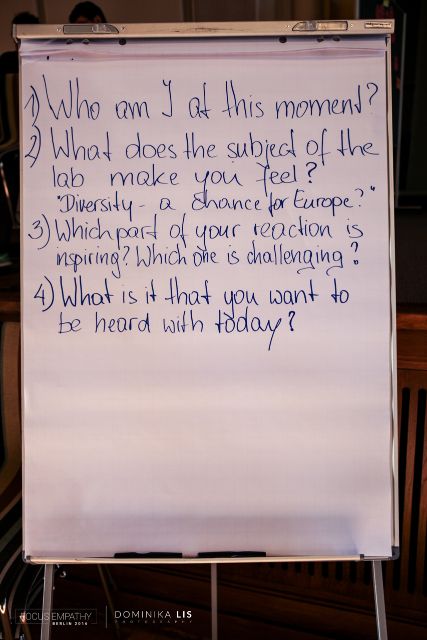 1) Who am I at this moment?
2) What does the subject of the
lab make you feel?
"Diversity - a chance for Europe?"
3) Which part of your reaction is
inspiring? Which one is challenging?
4) What is it that you want to
be heard with today?
FOCUS EMPATHY
BERLIN 2016
DOMINIKA LIS
PHOTOGRAPHY